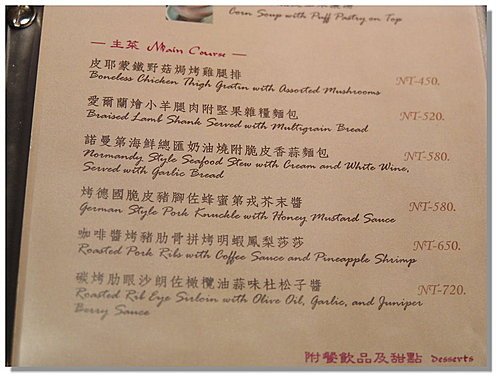 Corn Soup with Puff Pastry on Top
— 主菜 Main Course —
皮耶蒙鐵野菇焗烤雞腿排
Boneless Chicken Thigh Gratin with Assorted Mushrooms NT-450.
愛爾蘭燴小羊腿肉附堅果雜糧麵包
Braised Lamb Shank Served with Multigrain Bread NT-520.
諾曼第海鮮總匯奶油燒附脆皮香蒜麵包
Normandy Style Seafood Stew with Cream and White Wine, NT-580.
Served with Garlic Bread
烤德國脆皮豬腳佐蜂蜜第戎芥末醬
German Style Pork Knuckle with Honey Mustard Sauce NT-580.
咖啡醬烤豬肋骨拼烤明蝦鳳梨莎莎
Roasted Pork Ribs with Coffee Sauce and Pineapple Shrimp NT-650.
碳烤肋眼沙朗佐橄欖油蒜味杜松子醬
Roasted Rib Eye Sirloin with Olive Oil, Garlic, and Juniper NT-720.
Berry Sauce
附餐飲品及甜點 Desserts